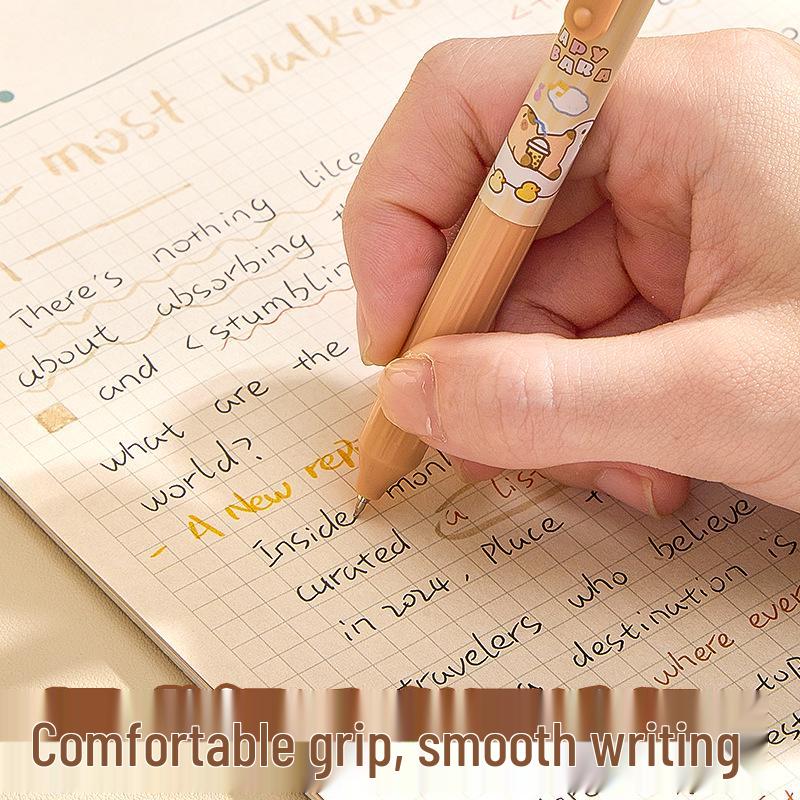 most walkab
APY
BARA
There's nothing like
about absorbing
and < stumblin
what are the
world?
- A New rep
Inside mon
curated a list
in 2024, Place
travelers who believe
destination is
where ever
top
est
Comfortable grip, smooth writing